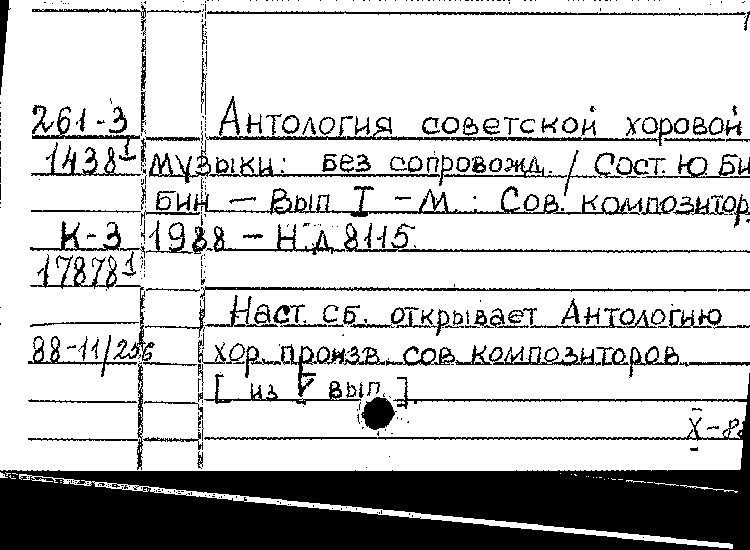 261-3 Антология советской хоровой
1438¹ музыки: Без сопровожд. / Сост. Ю Би
бин — Вып I – М. : Сов. композитор
К-3 1988 — Н.д 8115.
17878¹
Наст. сб. открывает Антологию
88-11/256 хор. произв. сов. композиторов
[ из V вып. ].
X-88